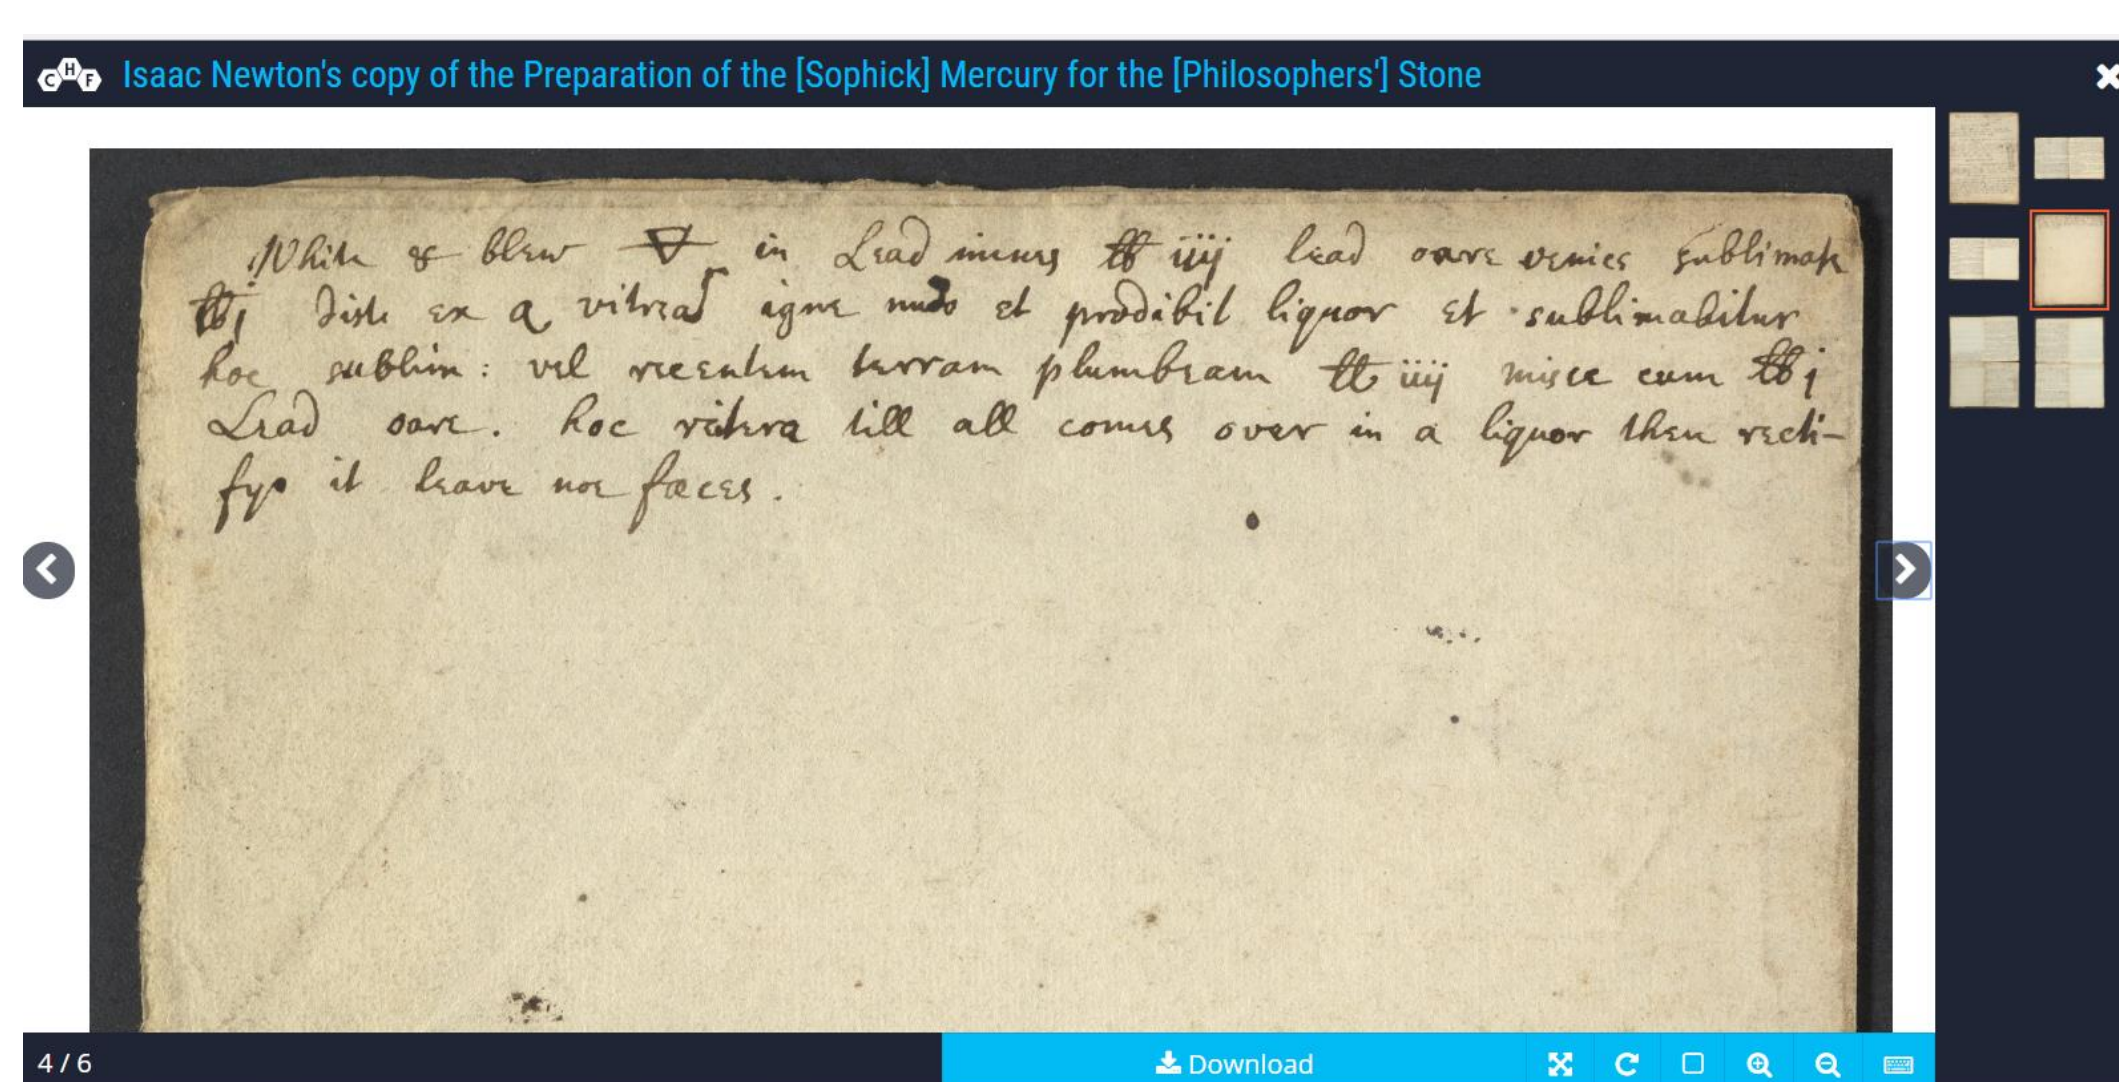 CHF Isaac Newton's copy of the Preparation of the [Sophick] Mercury for the [Philosophers'] Stone
White & blew 🜃 in Lead mines ℔ iiij lead oare venies sublimate
℔j dist ex a vitrea igne nudo et prodibit liquor et sublimabitur
hoc sublim: vel recentem terram plumbeam ℔ iiij misce cum ℔j
Lead oare. hoc ritera till all comes over in a liquor then recti-
fye it leave noe fæces.
4 / 6
Download